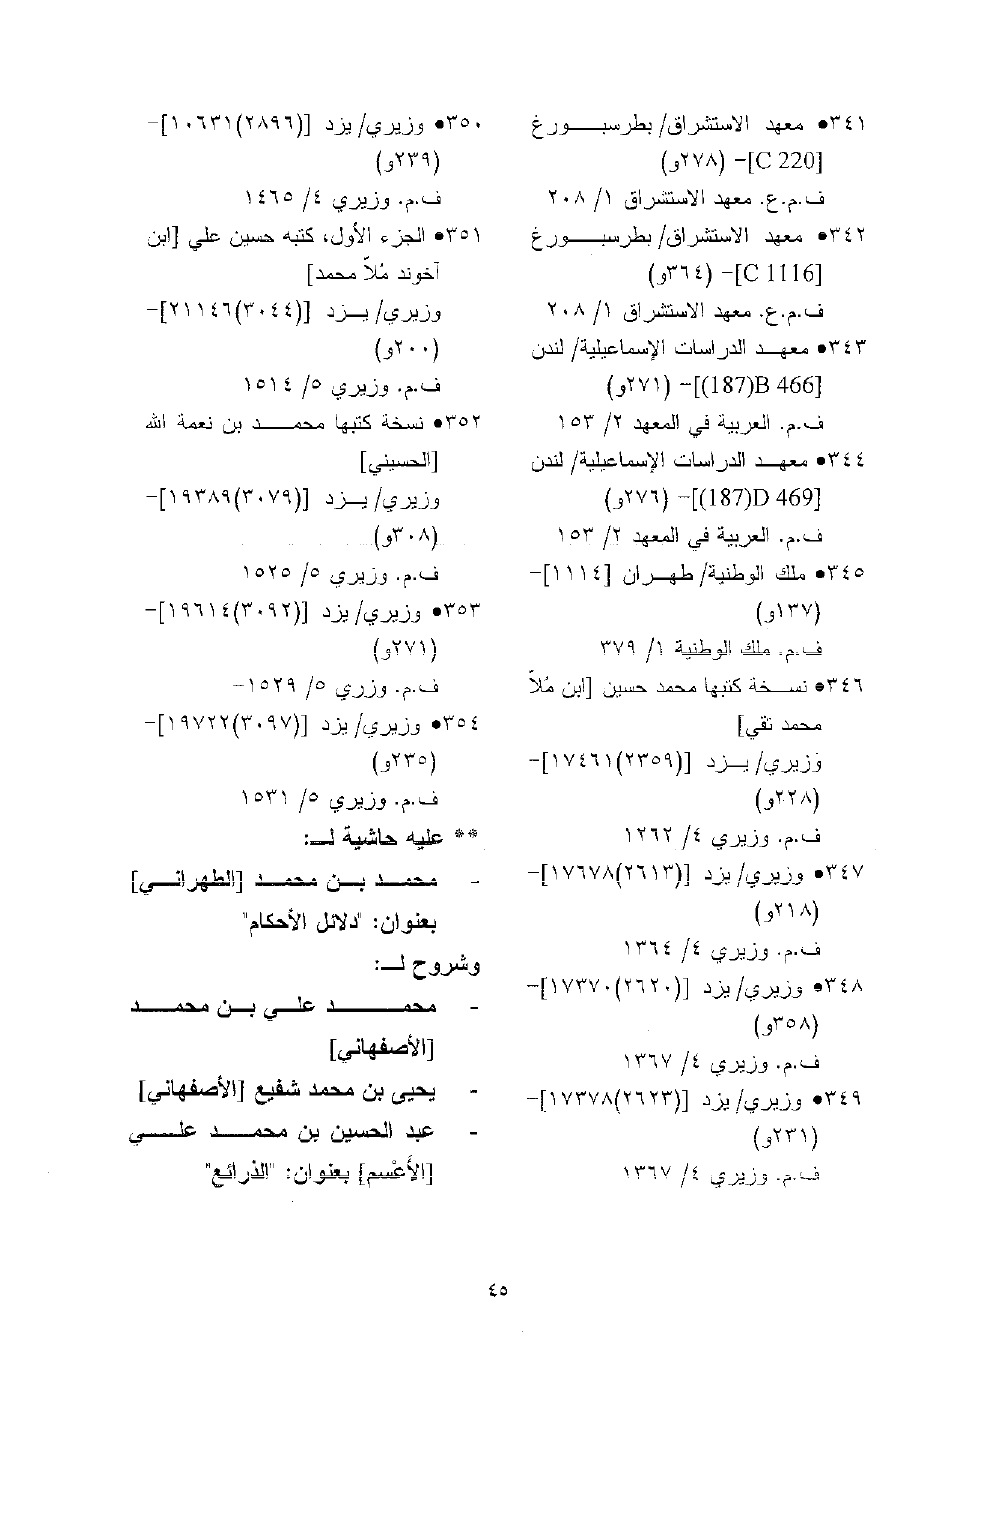 ٣٤١• معهد الاستشراق/ بطرسبورغ
[C 220]- (٢٧٨و)
ف.م.ع. معهد الاستشراق ١/ ٢٠٨
٣٤٢• معهد الاستشراق/ بطرسبورغ
[C 1116]- (٣٦٤و)
ف.م.ع. معهد الاستشراق ١/ ٢٠٨
٣٤٣• معهد الدراسات الإسماعيلية/ لندن
[187)B 466)]- (٢٧١و)
ف.م. العربية في المعهد ٢/ ١٥٣
٣٤٤• معهد الدراسات الإسماعيلية/ لندن
[187)D 469)]- (٢٧٦و)
ف.م. العربية في المعهد ٢/ ١٥٣
٣٤٥• ملك الوطنية/ طهران [١١١٤]-
(١٣٧و)
ف.م. ملك الوطنية ١/ ٣٧٩
٣٤٦• نسخة كتبها محمد حسين [ابن مُلاّ
محمد تقي]
وزيري/ يزد [(٢٣٥٩)١٧٤٦١]-
(٢٢٨و)
ف.م. وزيري ٤/ ١٢٦٢
٣٤٧• وزيري/ يزد [(٢٦١٣)١٧٦٧٨]-
(٢١٨و)
ف.م. وزيري ٤/ ١٣٦٤
٣٤٨• وزيري/ يزد [(٢٦٢٠)١٧٣٧٠]-
(٣٥٨و)
ف.م. وزيري ٤/ ١٣٦٧
٣٤٩• وزيري/ يزد [(٢٦٢٣)١٧٣٧٨]-
(٢٣١و)
ف.م. وزيري ٤/ ١٣٦٧
٣٥٠• وزيري/ يزد [(٢٨٩٦)١٠٦٣١]-
(٢٣٩و)
ف.م. وزيري ٤/ ١٤٦٥
٣٥١• الجزء الأول، كتبه حسين علي [ابن
آخوند مُلاّ محمد]
وزيري/ يزد [(٣٠٤٤)٢١١٤٦]-
(٢٠٠و)
ف.م. وزيري ٥/ ١٥١٤
٣٥٢• نسخة كتبها محمد بن نعمة الله
[الحسيني]
وزيري/ يزد [(٣٠٧٩)١٩٣٨٩]-
(٣٠٨و)
ف.م. وزيري ٥/ ١٥٢٥
٣٥٣• وزيري/ يزد [(٣٠٩٢)١٩٦١٤]-
(٢٧١و)
ف.م. وزري ٥/ ١٥٢٩-
٣٥٤• وزيري/ يزد [(٣٠٩٧)١٩٧٢٢]-
(٢٣٥و)
ف.م. وزيري ٥/ ١٥٣١
** عليه حاشية لـ:
- محمد بن محمد [الطهراني]
بعنوان: "دلائل الأحكام"
وشروح لـ:
- محمد علي بن محمد
[الأصفهاني]
- يحيى بن محمد شفيع [الأصفهاني]
- عبد الحسين بن محمد علي
[الأعْسم] بعنوان: "الذرائع"
٤٥